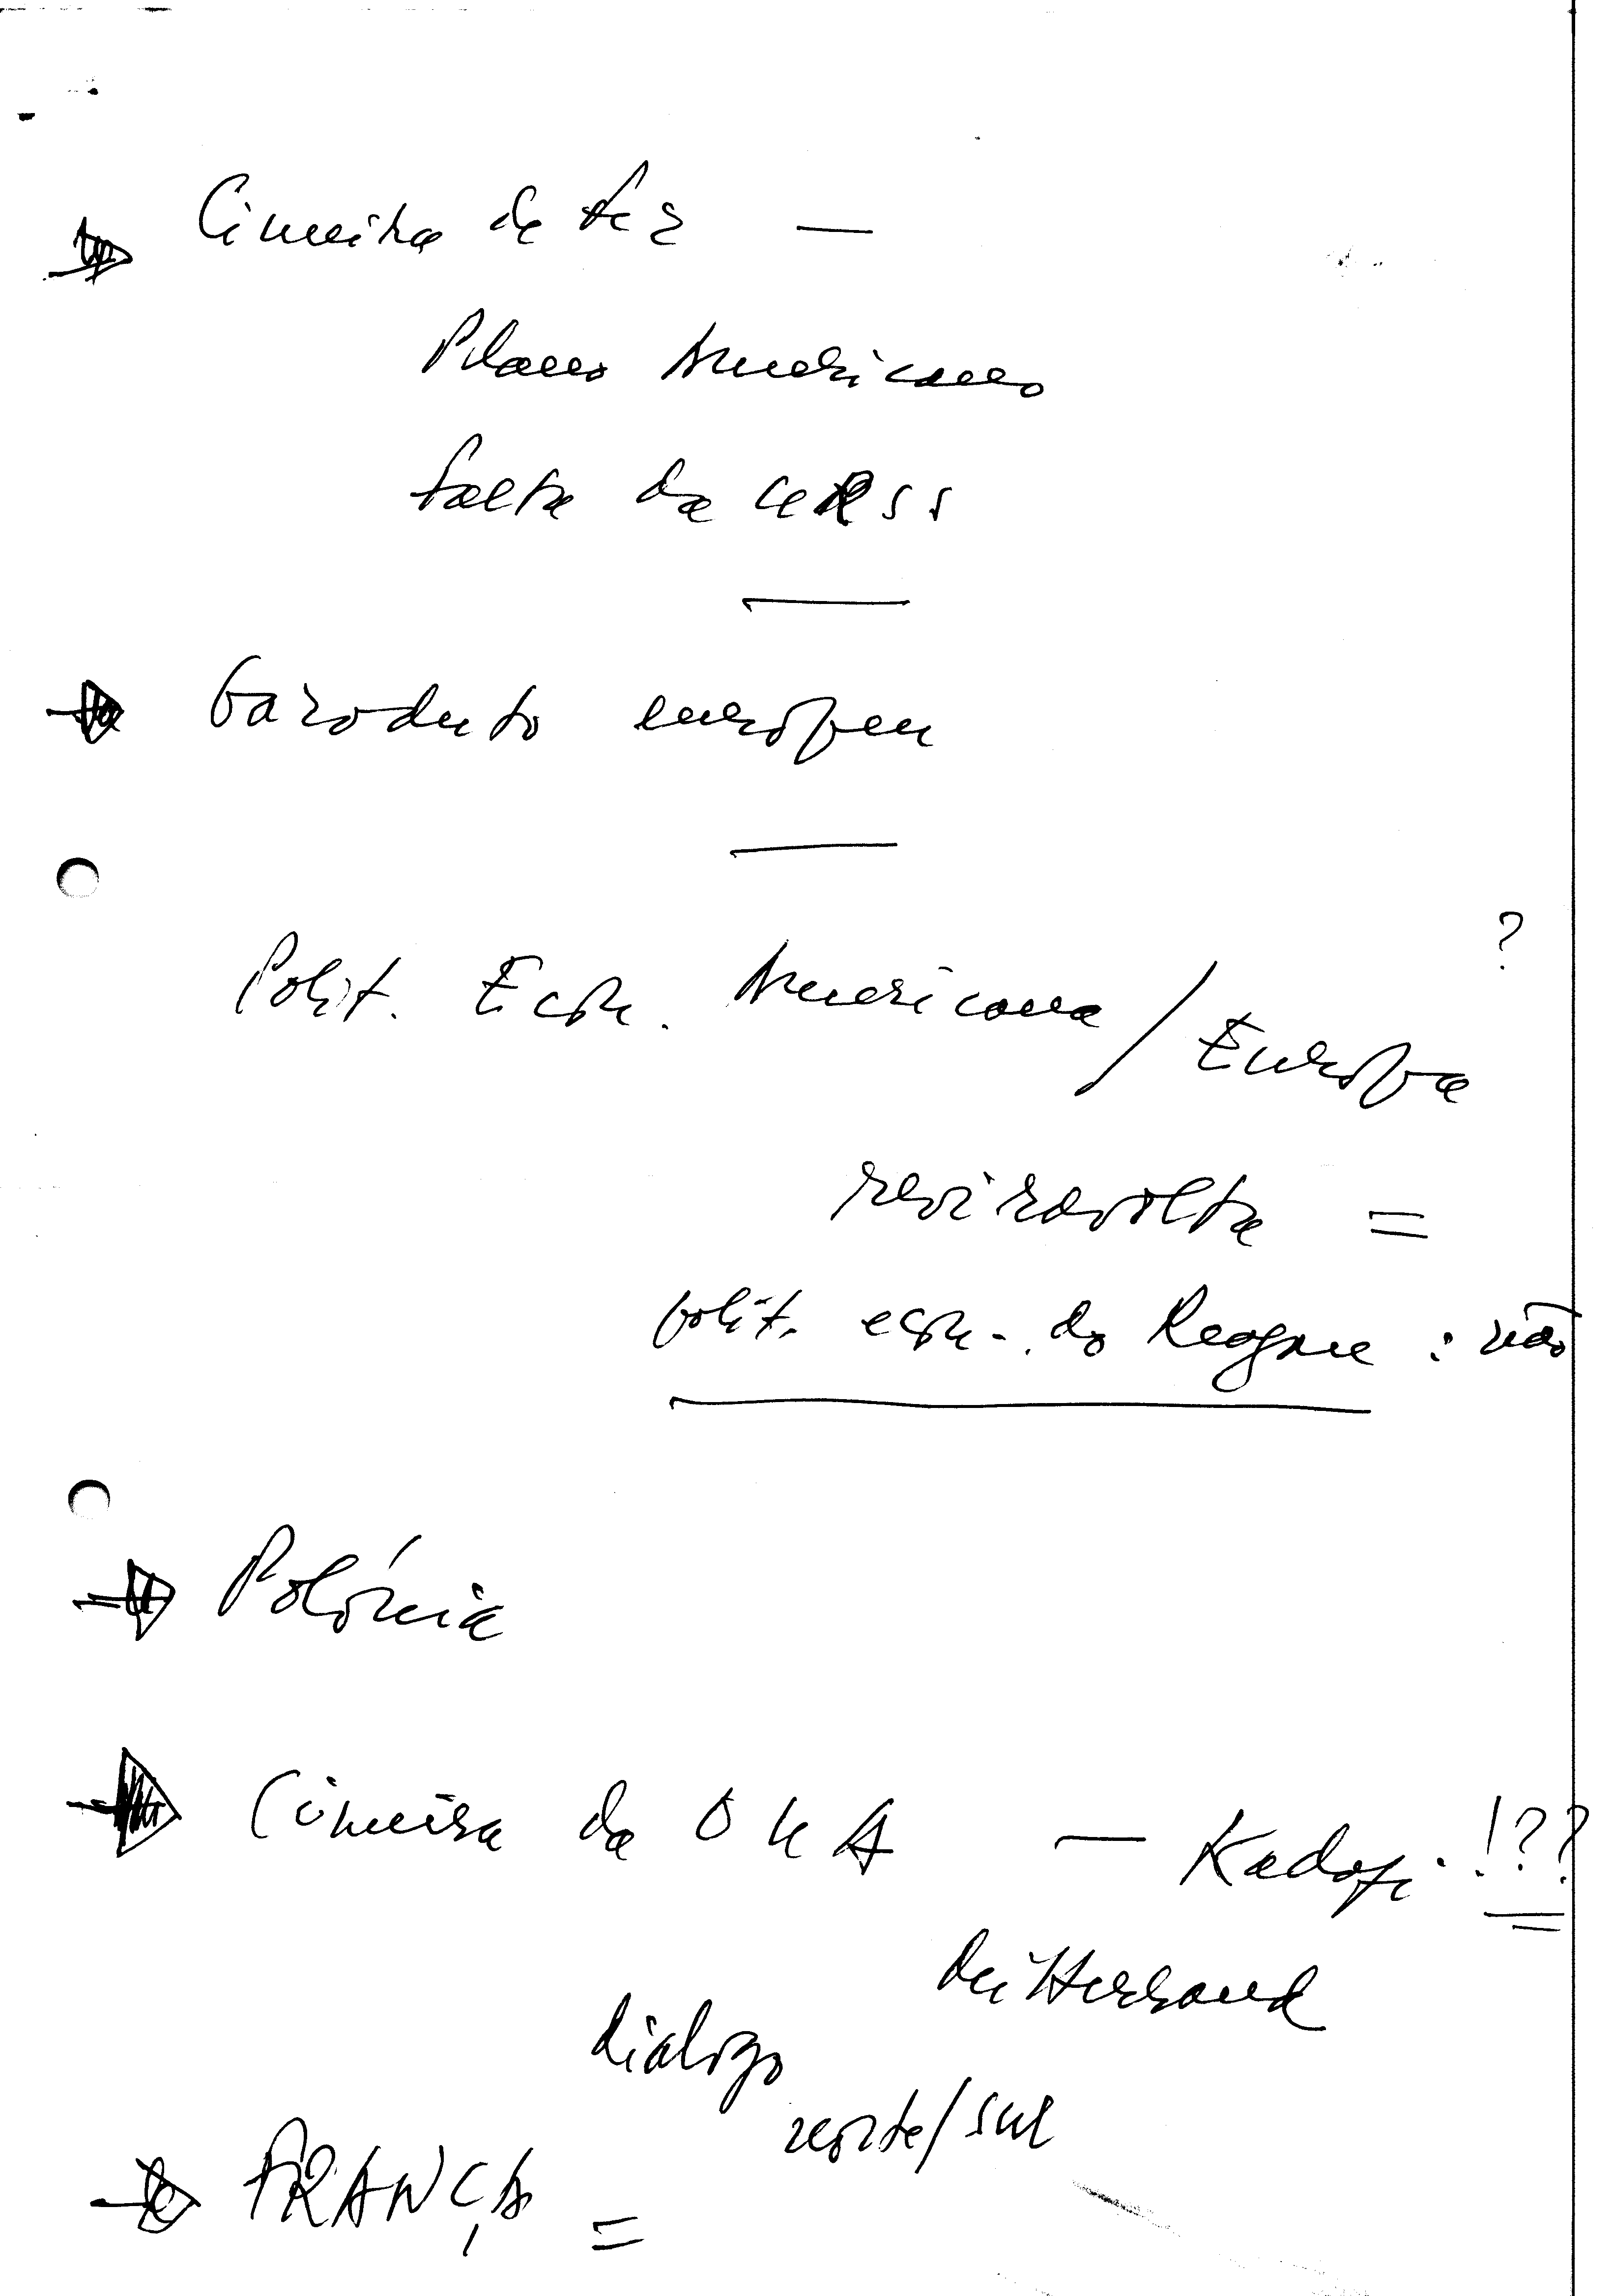 → Cimeira de Fez —
Plano Americano
falta da URSS
→ Gazoduto europeu
?
Polit. Econ. Americana / Europa
reviravolta =
polit. econ. do Reagan : não
→ Polónia
→ Cimeira da OUA — Kadafi !??
Mitterrand
dialogo
norte/sul
→ FRANÇA =